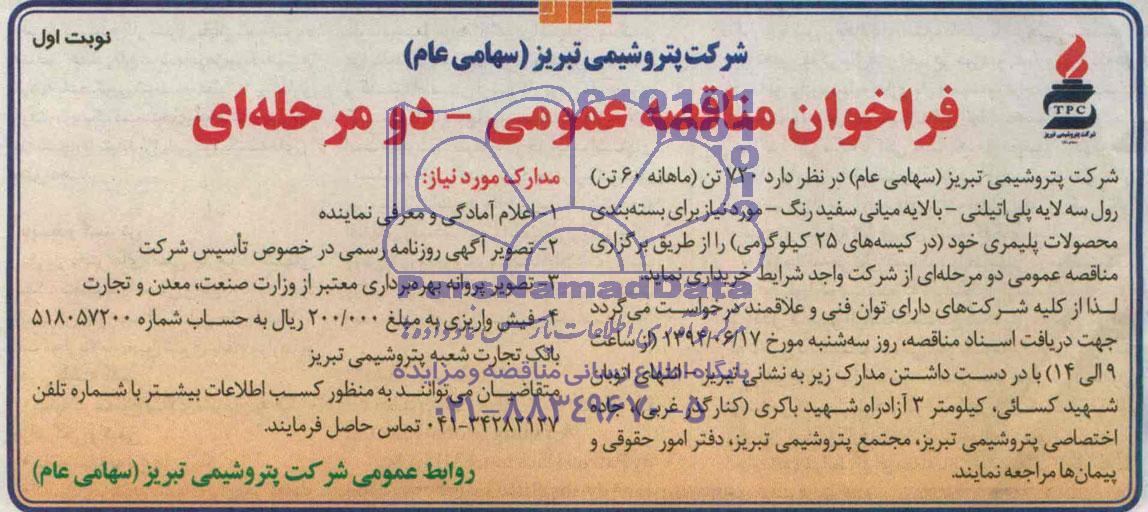 نوبت اول
شرکت پتروشیمی تبریز (سهامی عام)
فراخوان مناقصه عمومی - دو مرحله‌ای
TPC
شرکت پتروشیمی تبریز
شرکت پتروشیمی تبریز (سهامی عام) در نظر دارد ۷۲۰ تن (ماهانه ۶۰ تن)
رول سه لایه پلی‌اتیلنی - با لایه میانی سفید رنگ - مورد نیاز برای بسته‌بندی
محصولات پلیمری خود (در کیسه‌های ۲۵ کیلوگرمی) را از طریق برگزاری
مناقصه عمومی دو مرحله‌ای از شرکت واجد شرایط خریداری نماید.
لذا از کلیه شرکت‌های دارای توان فنی و علاقمند درخواست می گردد
جهت دریافت اسناد مناقصه، روز سه‌شنبه مورخ ۱۳۹۴/۰۶/۱۷ (از ساعت
۹ الی ۱۴) با در دست داشتن مدارک زیر به نشانی تبریز - انتهای اتوبان
شهید کسائی، کیلومتر ۳ آزادراه شهید باکری (کنار گذر غربی)، جاده
اختصاصی پتروشیمی تبریز، مجتمع پتروشیمی تبریز، دفتر امور حقوقی و
پیمان‌ها مراجعه نمایند.
مدارک مورد نیاز:
۱- اعلام آمادگی و معرفی نماینده
۲- تصویر آگهی روزنامه رسمی در خصوص تأسیس شرکت
۳- تصویر پروانه بهره‌برداری معتبر از وزارت صنعت، معدن و تجارت
۴- فیش واریزی به مبلغ ۲۰۰/۰۰۰ ریال به حساب شماره ۵۱۸۰۵۷۲۰۰
بانک تجارت شعبه پتروشیمی تبریز
متقاضیان می‌توانند به منظور کسب اطلاعات بیشتر با شماره تلفن
۰۴۱-۳۴۲۸۲۱۲۷ تماس حاصل فرمایند.
روابط عمومی شرکت پتروشیمی تبریز (سهامی عام)
ParsNamadData
پایگاه اطلاع رسانی مناقصه و مزایده
۰۲۱-۸۸۳۴۹۶۷۰-۵